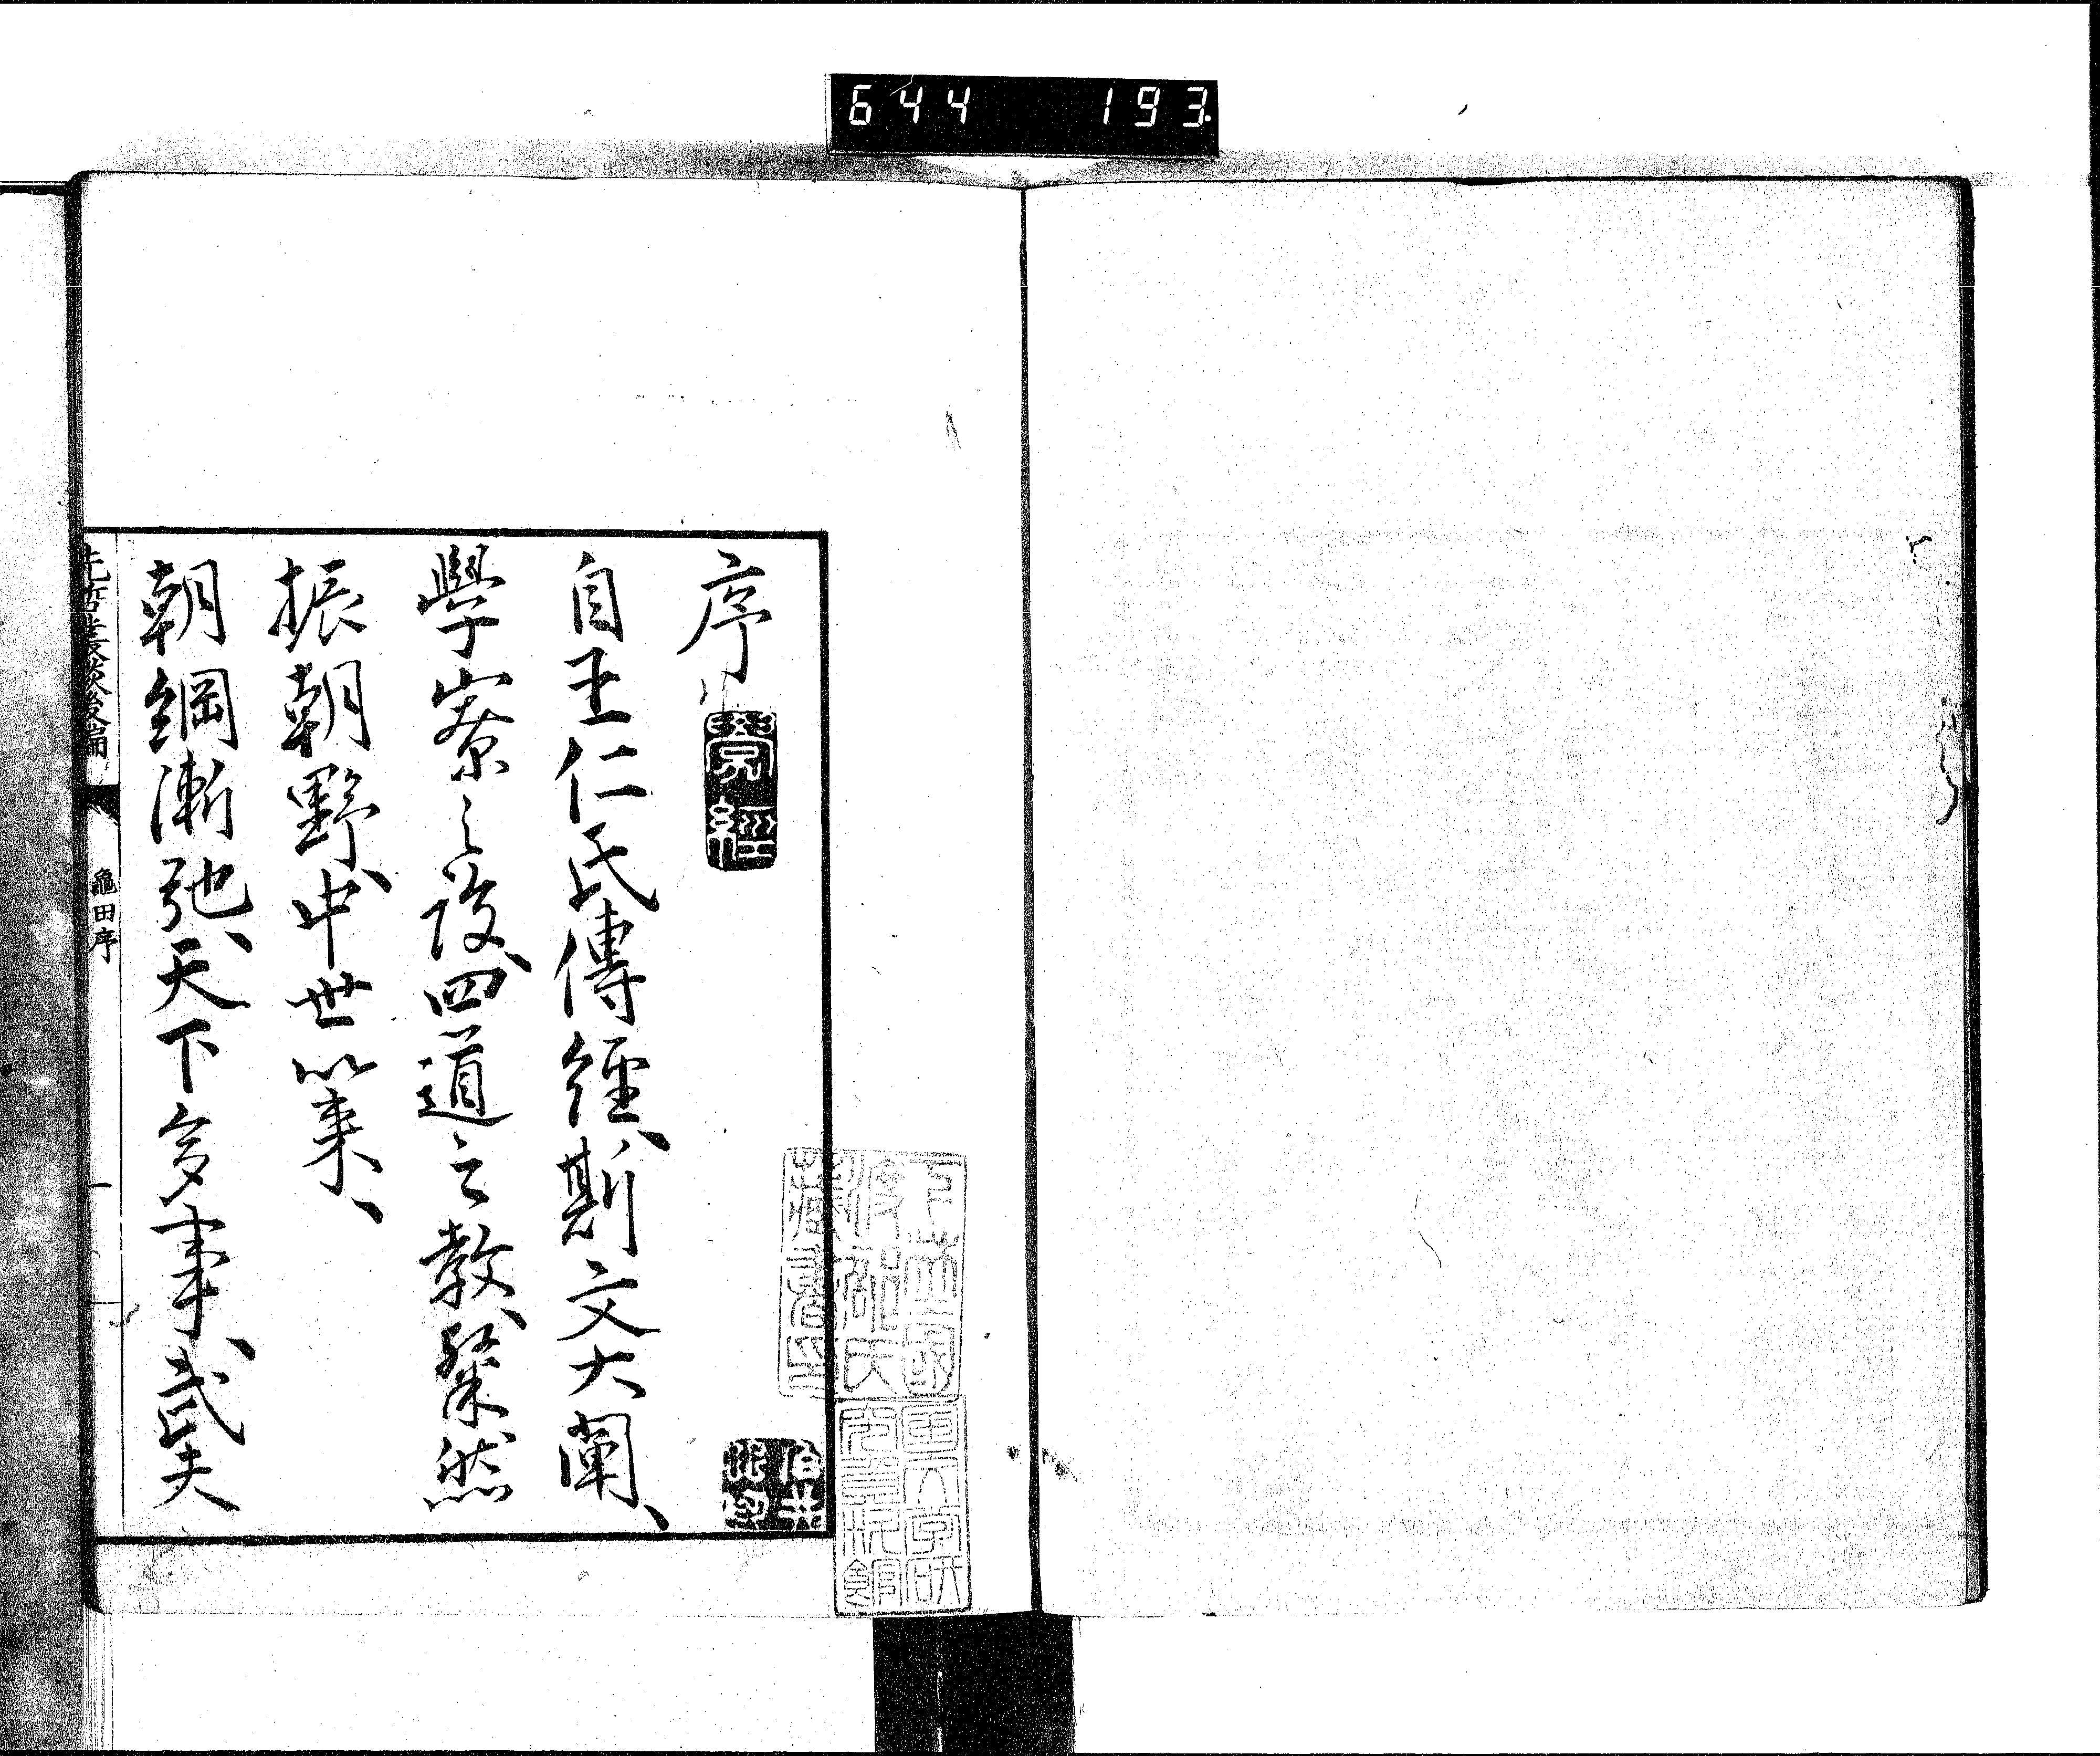 644 193
序
自王仁氏傳經、斯文大闡、
學寮之設、四道之教、粲然
振朝野、中世以來、
朝綱漸弛、天下多事、武夫
先哲叢談後編
龜田序
一